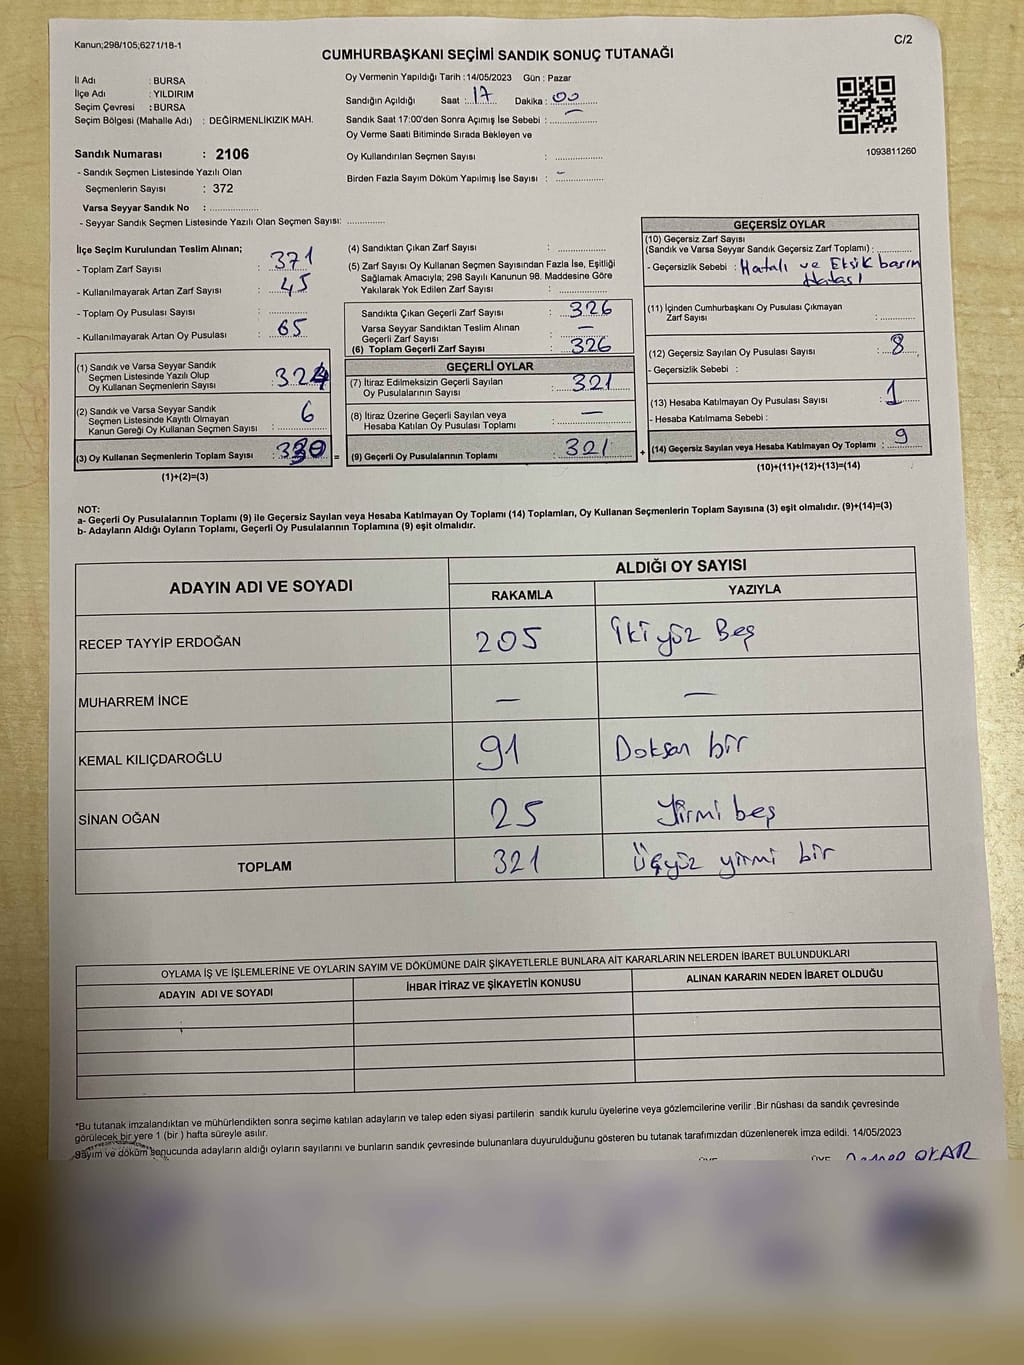 Kanun;298/105;6271/18-1
C/2
CUMHURBAŞKANI SEÇİMİ SANDIK SONUÇ TUTANAĞI
İl Adı : BURSA
İlçe Adı : YILDIRIM
Seçim Çevresi : BURSA
Seçim Bölgesi (Mahalle Adı) : DEĞİRMENLİKIZIK MAH.
Sandık Numarası : 2106
- Sandık Seçmen Listesinde Yazılı Olan
Seçmenlerin Sayısı : 372
Varsa Seyyar Sandık No :
- Seyyar Sandık Seçmen Listesinde Yazılı Olan Seçmen Sayısı:
Oy Vermenin Yapıldığı Tarih : 14/05/2023 Gün : Pazar
Sandığın Açıldığı Saat : 17 Dakika : 00
Sandık Saat 17:00'den Sonra Açımış İse Sebebi : —
Oy Verme Saati Bitiminde Sırada Bekleyen ve
Oy Kullandırılan Seçmen Sayısı :
Birden Fazla Sayım Döküm Yapılmış İse Sayısı : –
1093811260
İlçe Seçim Kurulundan Teslim Alınan;
- Toplam Zarf Sayısı : 371
- Kullanılmayarak Artan Zarf Sayısı : 45
- Toplam Oy Pusulası Sayısı :
- Kullanılmayarak Artan Oy Pusulası : 65
(1) Sandık ve Varsa Seyyar Sandık
Seçmen Listesinde Yazılı Olup
Oy Kullanan Seçmenlerin Sayısı : 324
(2) Sandık ve Varsa Seyyar Sandık
Seçmen Listesinde Kayıtlı Olmayan
Kanun Gereği Oy Kullanan Seçmen Sayısı : 6
(3) Oy Kullanan Seçmenlerin Toplam Sayısı : 330 =
(1)+(2)=(3)
(4) Sandıktan Çıkan Zarf Sayısı :
(5) Zarf Sayısı Oy Kullanan Seçmen Sayısından Fazla İse, Eşitliği
Sağlamak Amacıyla; 298 Sayılı Kanunun 98. Maddesine Göre
Yakılarak Yok Edilen Zarf Sayısı :
Sandıkta Çıkan Geçerli Zarf Sayısı : 326
Varsa Seyyar Sandıktan Teslim Alınan
Geçerli Zarf Sayısı : —
(6) Toplam Geçerli Zarf Sayısı : 326
GEÇERLİ OYLAR
(7) İtiraz Edilmeksizin Geçerli Sayılan
Oy Pusulalarının Sayısı : 321
(8) İtiraz Üzerine Geçerli Sayılan veya
Hesaba Katılan Oy Pusulası Toplamı : —
(9) Geçerli Oy Pusulalarının Toplamı : 321 +
GEÇERSİZ OYLAR
(10) Geçersiz Zarf Sayısı
(Sandık ve Varsa Seyyar Sandık Geçersiz Zarf Toplamı) :
- Geçersizlik Sebebi : Hatalı ve Eksik basım
Hatası
(11) İçinden Cumhurbaşkanı Oy Pusulası Çıkmayan
Zarf Sayısı :
(12) Geçersiz Sayılan Oy Pusulası Sayısı : 8
- Geçersizlik Sebebi :
(13) Hesaba Katılmayan Oy Pusulası Sayısı : 1
- Hesaba Katılmama Sebebi :
(14) Geçersiz Sayılan veya Hesaba Katılmayan Oy Toplamı : 9
(10)+(11)+(12)+(13)=(14)
NOT:
a- Geçerli Oy Pusulalarının Toplamı (9) ile Geçersiz Sayılan veya Hesaba Katılmayan Oy Toplamı (14) Toplamları, Oy Kullanan Seçmenlerin Toplam Sayısına (3) eşit olmalıdır. (9)+(14)=(3)
b- Adayların Aldığı Oyların Toplamı, Geçerli Oy Pusulalarının Toplamına (9) eşit olmalıdır.
ADAYIN ADI VE SOYADI ALDIĞI OY SAYISI
RAKAMLA YAZIYLA
RECEP TAYYİP ERDOĞAN 205 İki yüz Beş
MUHARREM İNCE — —
KEMAL KILIÇDAROĞLU 91 Doksan bir
SİNAN OĞAN 25 Yirmi beş
TOPLAM 321 Üçyüz yirmi bir
OYLAMA İŞ VE İŞLEMLERİNE VE OYLARIN SAYIM VE DÖKÜMÜNE DAİR ŞİKAYETLERLE BUNLARA AİT KARARLARIN NELERDEN İBARET BULUNDUKLARI
ADAYIN ADI VE SOYADI İHBAR İTİRAZ VE ŞİKAYETİN KONUSU ALINAN KARARIN NEDEN İBARET OLDUĞU
*Bu tutanak imzalandıktan ve mühürlendikten sonra seçime katılan adayların ve talep eden siyasi partilerin sandık kurulu üyelerine veya gözlemcilerine verilir .Bir nüshası da sandık çevresinde
görülecek bir yere 1 (bir ) hafta süreyle asılır.
Sayım ve döküm sonucunda adayların aldığı oyların sayılarını ve bunların sandık çevresinde bulunanlara duyurulduğunu gösteren bu tutanak tarafımızdan düzenlenerek imza edildi. 14/05/2023